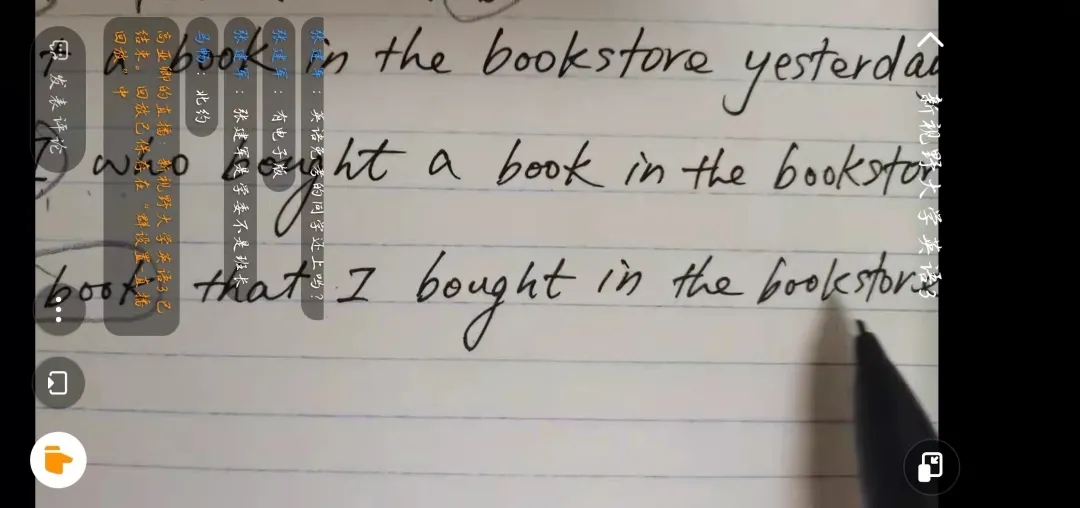 a book in the bookstore yesterday
I who bought a book in the bookstor
book that I bought in the bookstore
新视野大学英语3
张建军：英语免考的同学还上吗？
张建军：有电子版
张建军：张建军是学委不是班长
北约
高亚卿的直播：新视野大学英语3已结束。回放已保存在“群设置-直播回放”中
发表评论